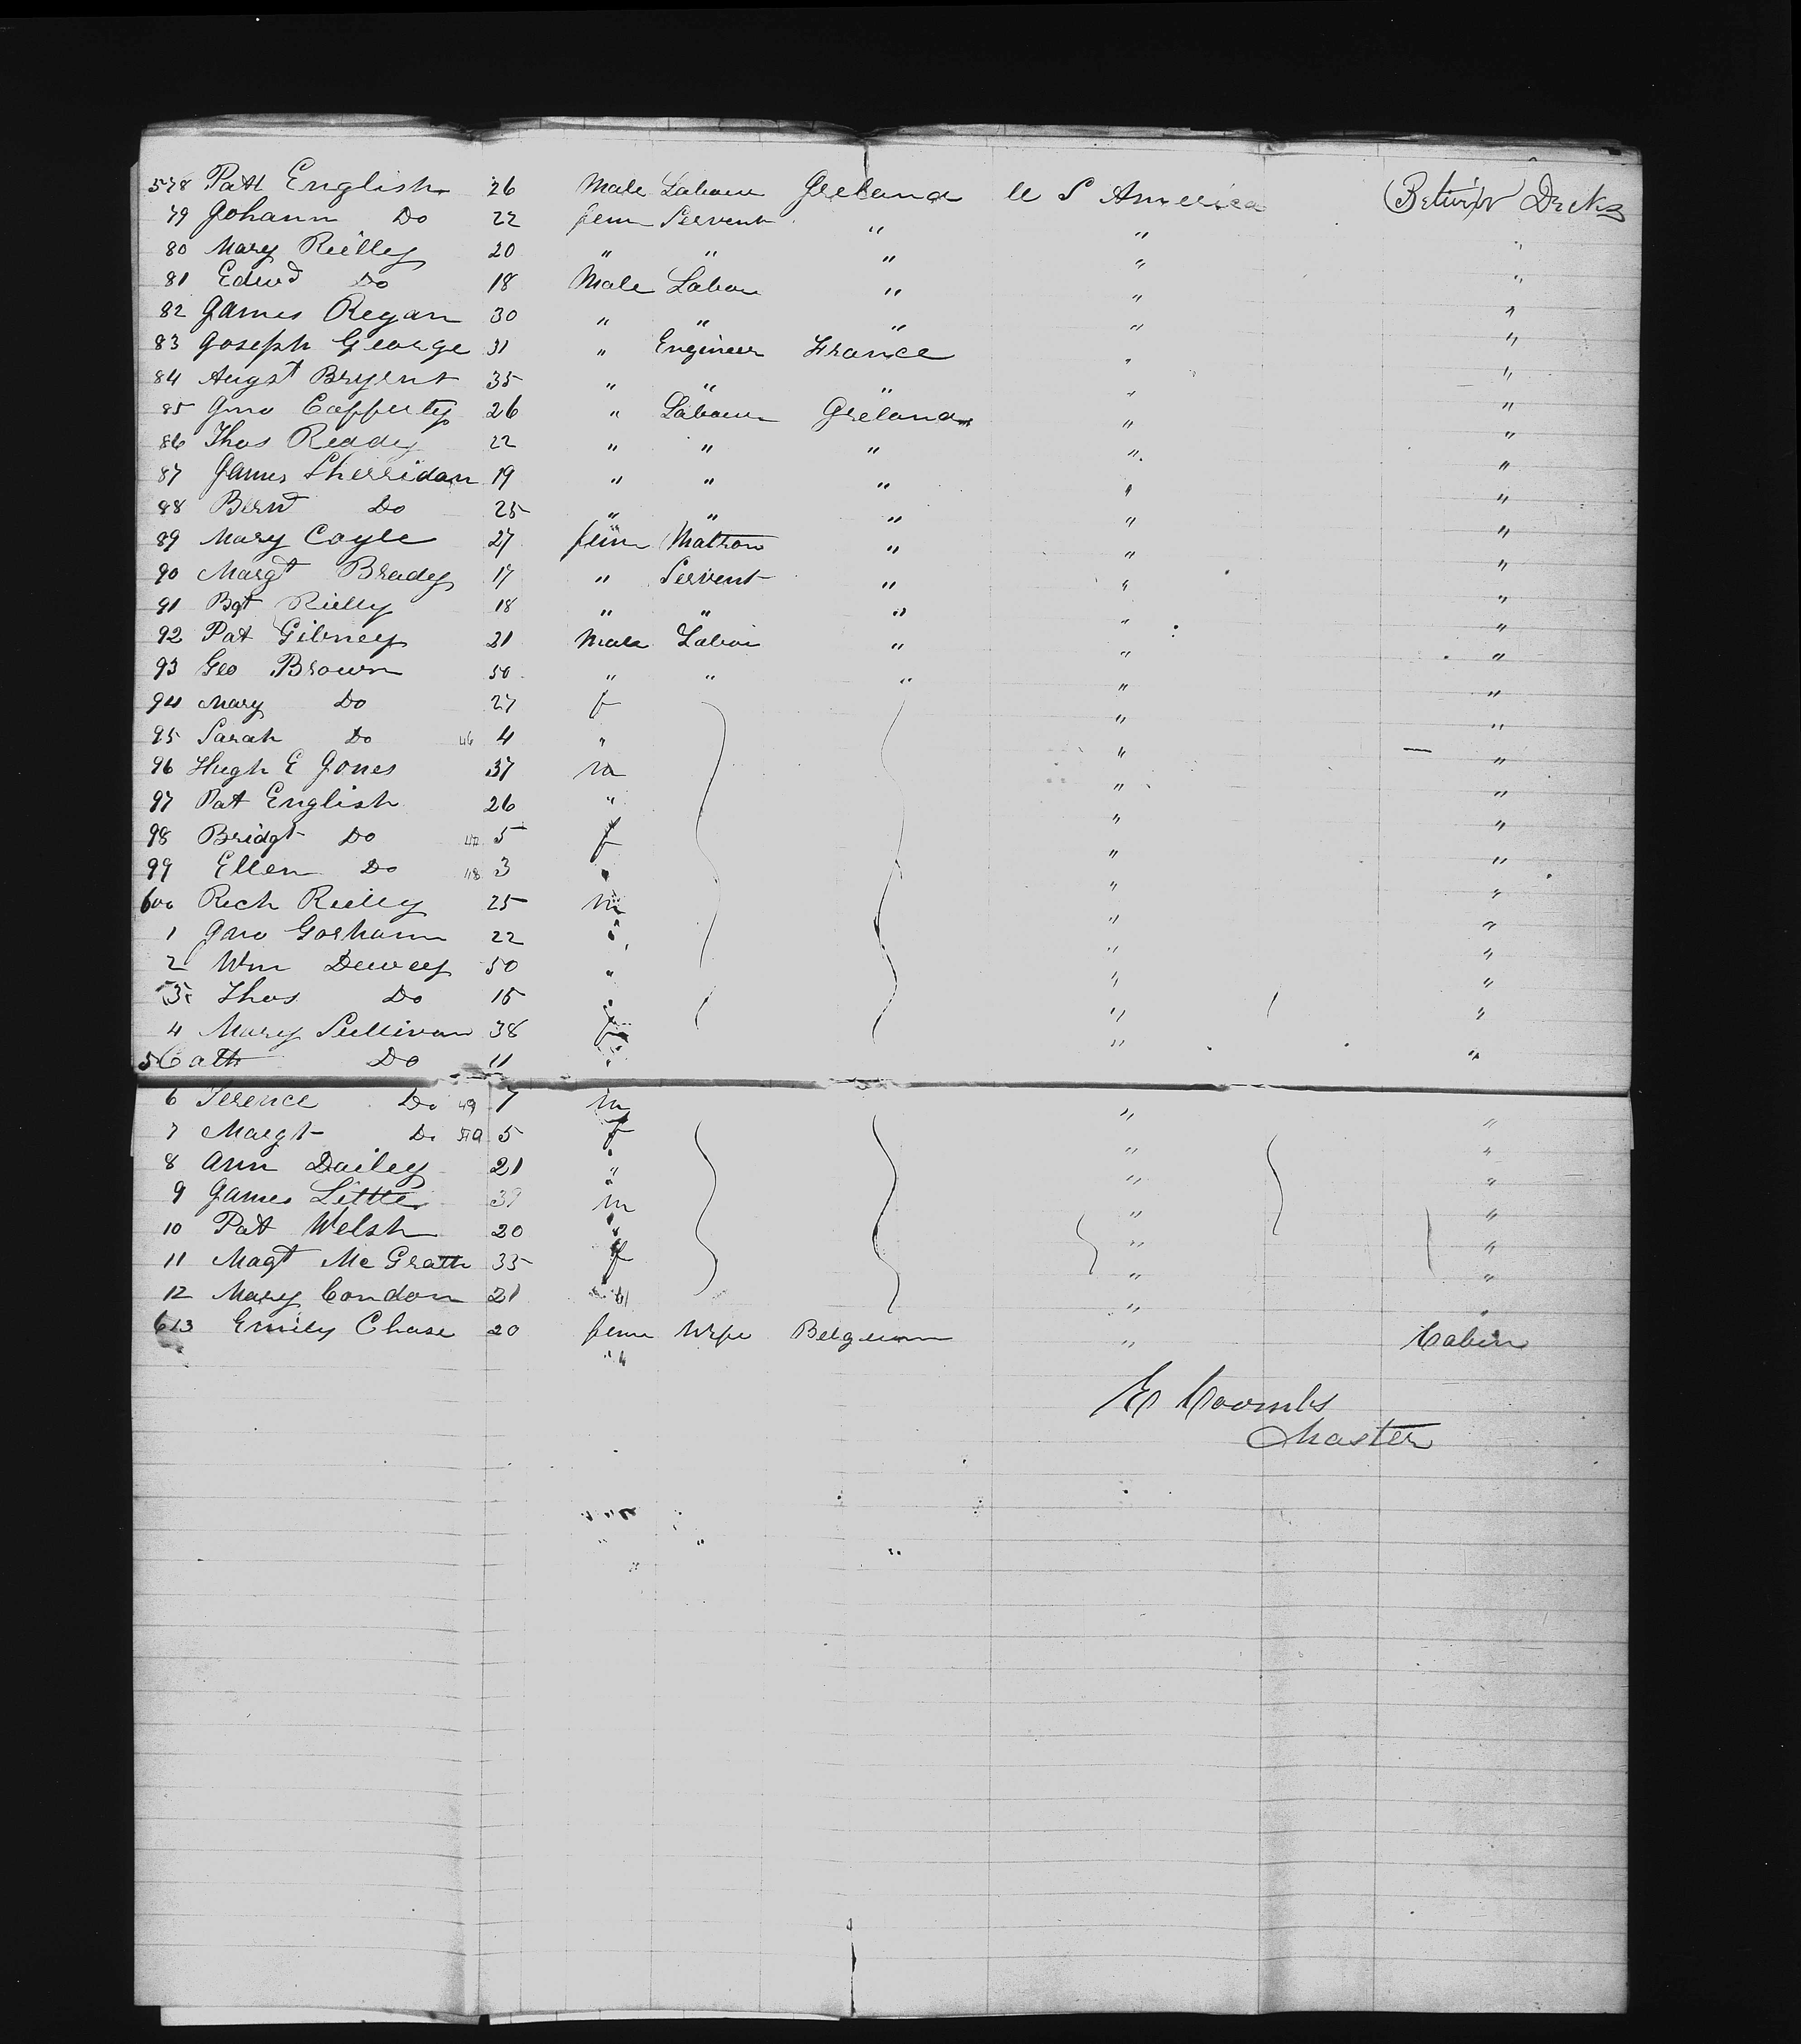 578 Patt English 26 Male Labour Ireland U S America Betwixt Decks
79 Johann Do 22 fem Servent " " "
80 Mary Reilley 20 " " " " "
81 Edwd Do 18 Male Labou " " "
82 James Regan 30 " " " " "
83 Joseph George 31 " Engineer France " "
84 Augst Bryent 35 " " " " "
85 Jno Cafferty 26 " Labour Ireland " "
86 Thos Reddy 22 " " " " "
87 James Sherridan 19 " " " " "
88 Bernd Do 25 " " " " "
89 Mary Coyle 27 fem Matron " " "
90 Margt Brady 17 " Servent " " "
91 Bgt Rielly 18 " " " " "
92 Pat Gibney 21 Male Labou " " "
93 Geo Brown 50 " " " " "
94 Mary Do 27 f " "
95 Sarah Do 46 4 " " "
96 Hugh E Jones 37 m " "
97 Pat English 26 " " "
98 Bridgt Do 47 5 f " "
99 Ellen Do 48 3 " " "
600 Rich Rielly 25 m " "
1 Jno Gorhann 22 " " "
2 Wm Dewey 50 " " "
3 Thos Do 15 " " "
4 Mary Sullivan 38 f " "
5 Cath Do 11 " " "
6 Terence Do 49 7 m " "
7 Margt Do 50 5 f " "
8 Ann Dailey 21 " " "
9 James Little 39 m " "
10 Pat Welsh 20 " " "
11 Magt Mc Grath 35 f " "
12 Mary Condon 21 " " "
613 Emily Chase 20 fem Wife Belguum " Cabin
E Coombs
Master